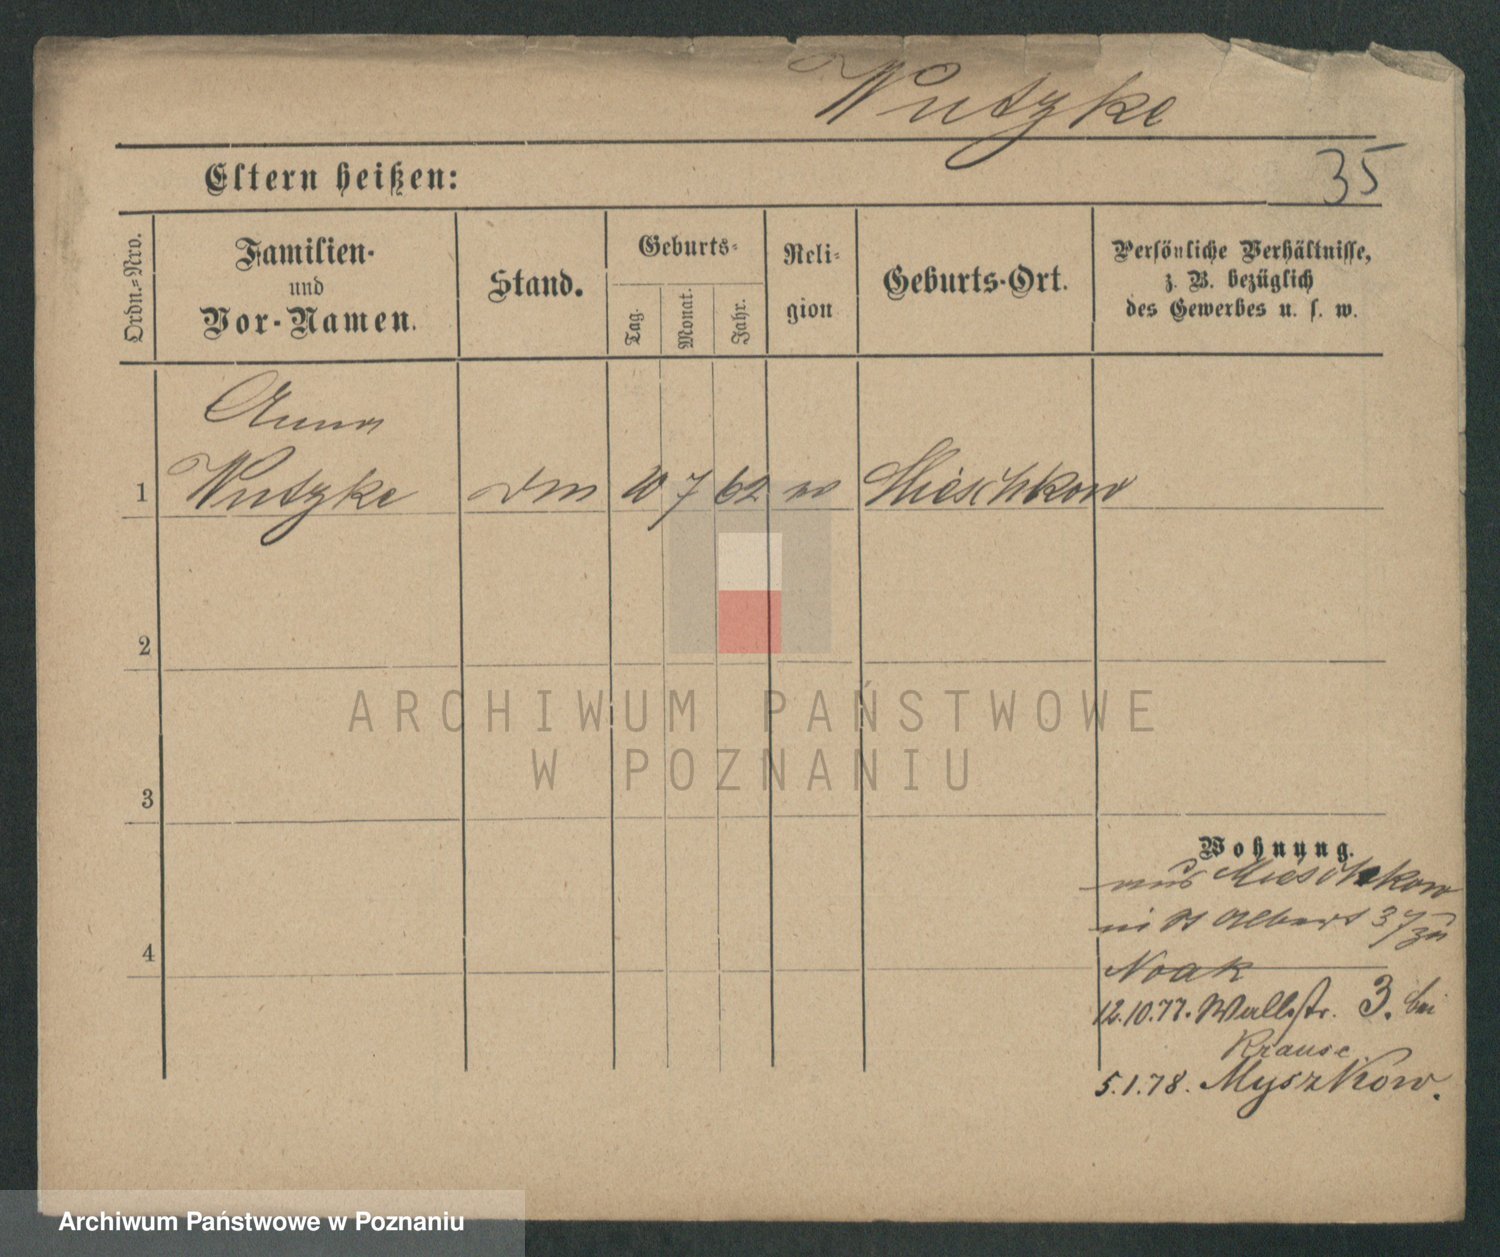 Wutzke
35
Eltern heißen:
Ordn.-Nro.
Familien-
und
Vor-Namen.
Stand.
Geburts-
Tag.
Monat.
Jahr.
Reli-
gion
Geburts-Ort.
Persönliche Verhältnisse,
z. B. bezüglich
des Gewerbes u. s. w.
Anna
1 Wutzke 7 62 Mieschkow
2
ARCHIWUM PAŃSTWOWE
W POZNANIU
3
Wohnung.
aus Mieschkow
St Albert 37 zu
4
Noak
12.10.77. Wallstr. 3. bei
Krause
5.1.78. Myszkow.
Archiwum Państwowe w Poznaniu